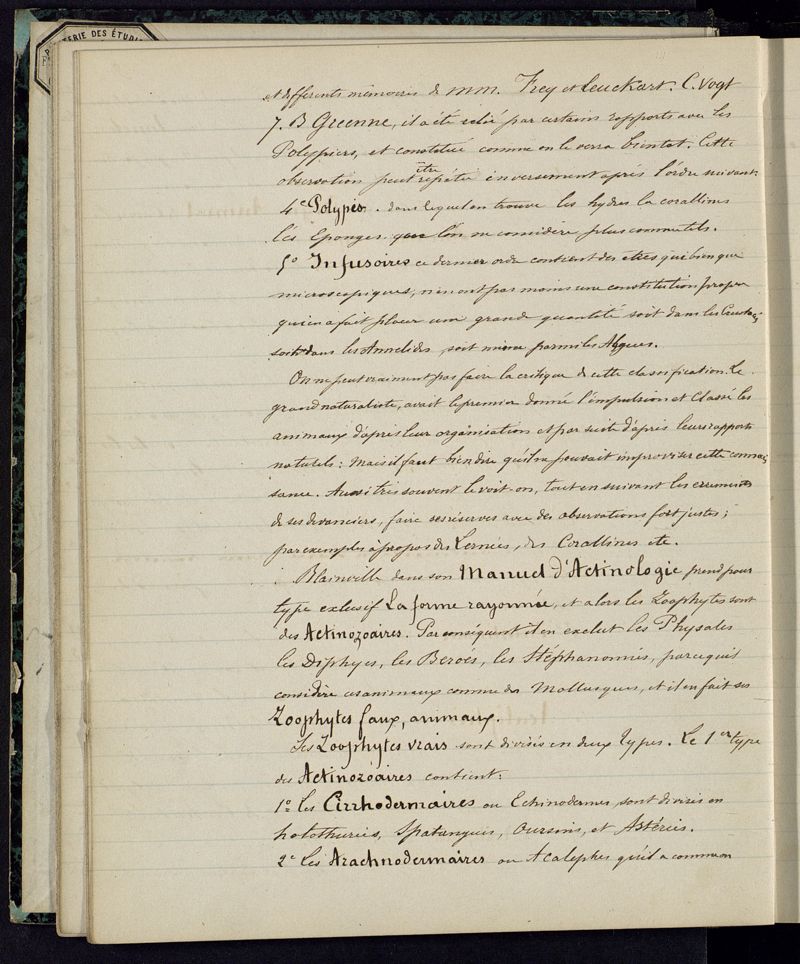 TERIE DES ÉTUDI
et différents mémoires de MM. Frey et Leuckart. C. Vogt
7. B Greenne, il a été relié par certains rapports avec les
Polypiers, et constitué comme on le verra bientot. Cette
observation peut être répétée inversement après l'ordre suivant:
4º Polypes. dans lequel on trouve les hydres la coralline
les Eponges que l'on ne considère plus comme tels.
5º Infusoires ce dernier ordre contient des etres qui bien que
microscopiques, n'en ont pas moins une constitution propre
qui en a fait placer une grande quantité soit dans les Crustac-
soit dans les Annelides, soit même parmi les Algues.
On ne peut vraiment pas faire la critique de cette classification. Le
grand naturaliste, avait le premier donné l'impulsion et Classé les
animaux d'après leur organisation et par suite d'après leurs rapports
naturels: Mais il faut bien dire qu'il ne pouvait improviser cette connais-
sance. Aussi très souvent le voit-on, tout en suivant les errements
de ses devanciers, faire ses réserves avec des observations fort justes;
par exemples à propos des Lernées, des Corallines etc.
Blainville dans son Manuel d'Actinologie prend pour
type exlusif La forme rayonnée, et alors les Zoophytes sont
des Actinozoaires. Par conséquent il en exclut les Physales
les Diphyes, les Beroës, les Stéphanomies, parcequ'il
considère ces animaux comme des Mollusques, et il en fait ses
Zoophytes faux, animaux.
Ses Zoophytes vrais sont divisés en deux types. Le 1er type
des Actinozoaires contient:
1º les Cirrhodermaires ou Echinodermes, sont divisés en
holothuries, Spatangues, Oursins, et Astéries.
2º Les Arachnodermaires ou Acalephes qu'il a comman